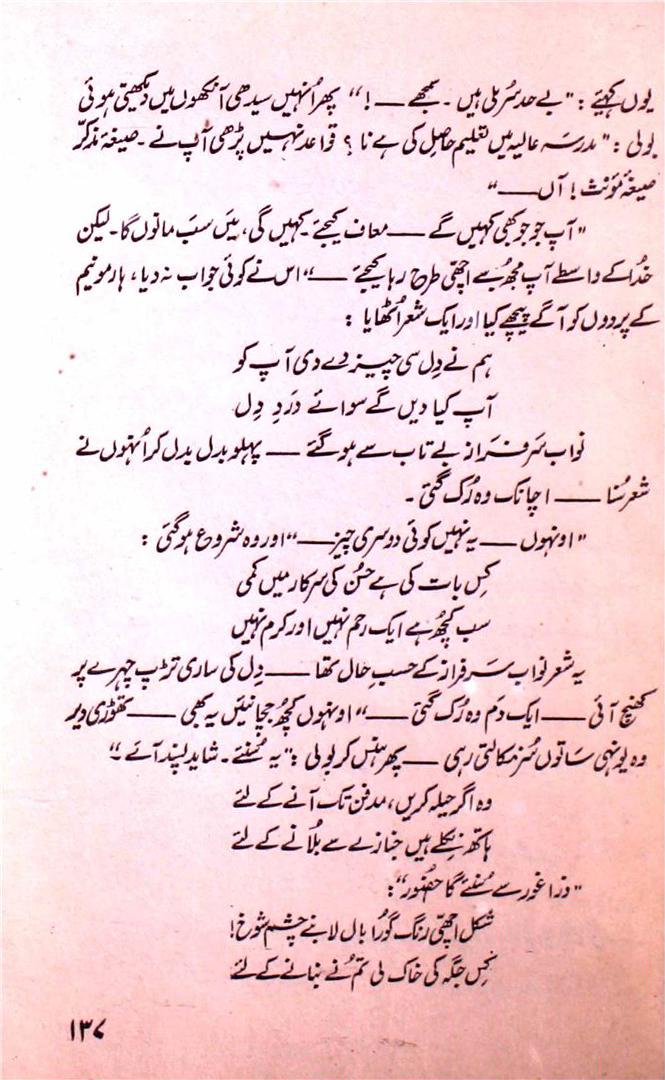 یوں کہیئے : "بے حد سُریلی ہیں ۔ سمجھے —— !" پھر اُنہیں سیدھی آنکھوں میں دیکھتی ہوئی
بولی : " مدرسہ عالیہ میں تعلیم حاصل کی ہے نا ؟ قواعد نہیں پڑھی آپ نے ۔ صیغۂ مذکّر
صیغۂ مؤنث ! آں —— "
"آپ جو جو کھی کہیں گے —— معاف کیجئے ۔ کہیں گی ، میں سب مانوں گا ۔ لیکن
خُدا کے واسطے آپ مجھ سے اچھی طرح رہا کیجئے ——" اس نے کوئی جواب نہ دیا ، ہارمونیم
کے پردوں کو آگے پیچھے کیا اور ایک شعر اُٹھایا :
ہم نے دِل سی چیز دے دی آپ کو
آپ کیا دیں گے سوائے دَردِ دِل
نواب سَرفَراز بے تاب سے ہو گئے —— پہلو بدل بدل کر اُنہوں نے
شعر سُنا —— اچانک وہ رُک گئی ۔
"اونہوں —— یہ نہیں کوئی دوسری چیز ——" اور وہ شروع ہو گئی :
کِس بات کی ہے حسُن کی سرکار میں کمی
سب کچھ ہے ایک رحم نہیں اور کرم نہیں
یہ شعر نواب سَرفراز کے حسبِ حال تھا —— دِل کی ساری تڑپ چہرے پر
کھنچ آئی —— ایک دَم وہ رُک گئی ——" اونہوں کچھ جچا نئیں یہ بھی —— تھوڑی دیر
وہ یونہی ساتوں سُر نکالتی رہی —— پھر ہنس کر بولی : "یہ سُنئے ۔ شاید پسند آئے ۔"
وہ اگر حیلہ کریں ، مدفن تک آنے کے لئے
ہاتھ نِکلے ہیں جنازے سے بلانے کے لئے
"ذرا غور سے سُنئے گا حضُور" :
شکل اچھی رنگ گورا بال لابنے چشم شوخ !
کِس جگہ کی خاک لی تم نے بنانے کے لئے
۱۳۷